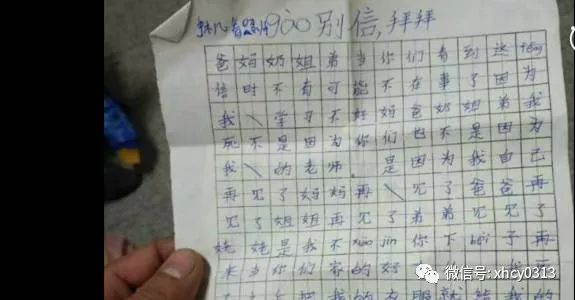 900别信,拜拜
爸妈奶姐弟当你们看到这feng
信时不有可能不在事了因为
我\学习不好妈爸奶姐弟我
死不是因为你们也不是因为
我\的老师。是因为我自己
再见了妈妈再\见了爸爸再
见了姐姐再见了弟弟见见了
姥姥是我不xiao jin你下bei子再
来当你们家的好
微信号: xhcy0313